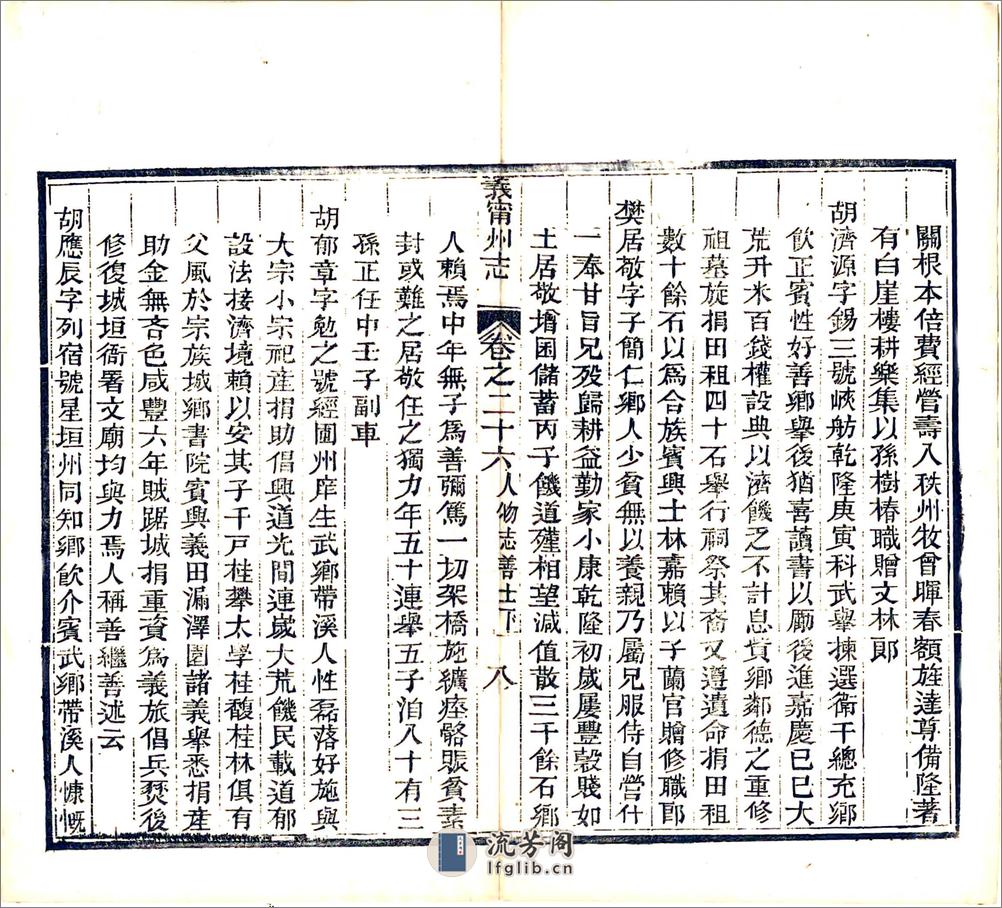 關根本倍費經營壽八秩州牧曾暉春額旌達尊備隆著
有白崖樓耕樂集以孫樹椿職贈文林郎
胡濟源字錫三號峽舫乾隆庚寅科武舉揀選衛千總充鄉
飲正賓性好善鄉舉後猶喜讀書以勵後進嘉慶己巳大
荒升米百錢權設典以濟饑乏不計息貲鄉鄰德之重修
祖墓旋捐田租四十石舉行祠祭其裔又遵遺命捐田租
數十餘石以爲合族賓興士林嘉賴以子蘭官贈修職郎
樊居敬字子簡仁鄉人少貧無以養親乃屬兄服侍自營什
一奉甘旨兄歿歸耕益勤家小康乾隆初歲屢豐穀賤如
土居敬增囷儲蓄丙子饑道殣相望減值散三千餘石鄉
義甯州志 卷之二十六 人物志善士下 八
人賴焉中年無子爲善彌篤一切架橋施纊瘞骼賑貧素
封或難之居敬任之獨力年五十連舉五子洎八十有三
孫正任中壬子副車
胡郁章字勉之號經圃州庠生武鄉帶溪人性磊落好施與
大宗小宗祀產捐助倡興道光間連歲大荒饑民載道郁
設法接濟境賴以安其子千戶桂攀太學桂馥桂林俱有
父風於宗族城鄉書院賓興義田漏澤園諸義舉悉捐產
助金無吝色咸豐六年賊踞城捐重資爲義旅倡兵燹後
修復城垣衙署文廟均與力焉人稱善繼善述云
胡應辰字列宿號星垣州同知鄉飲介賓武鄉帶溪人慷慨
流芳阁
lfglib.cn